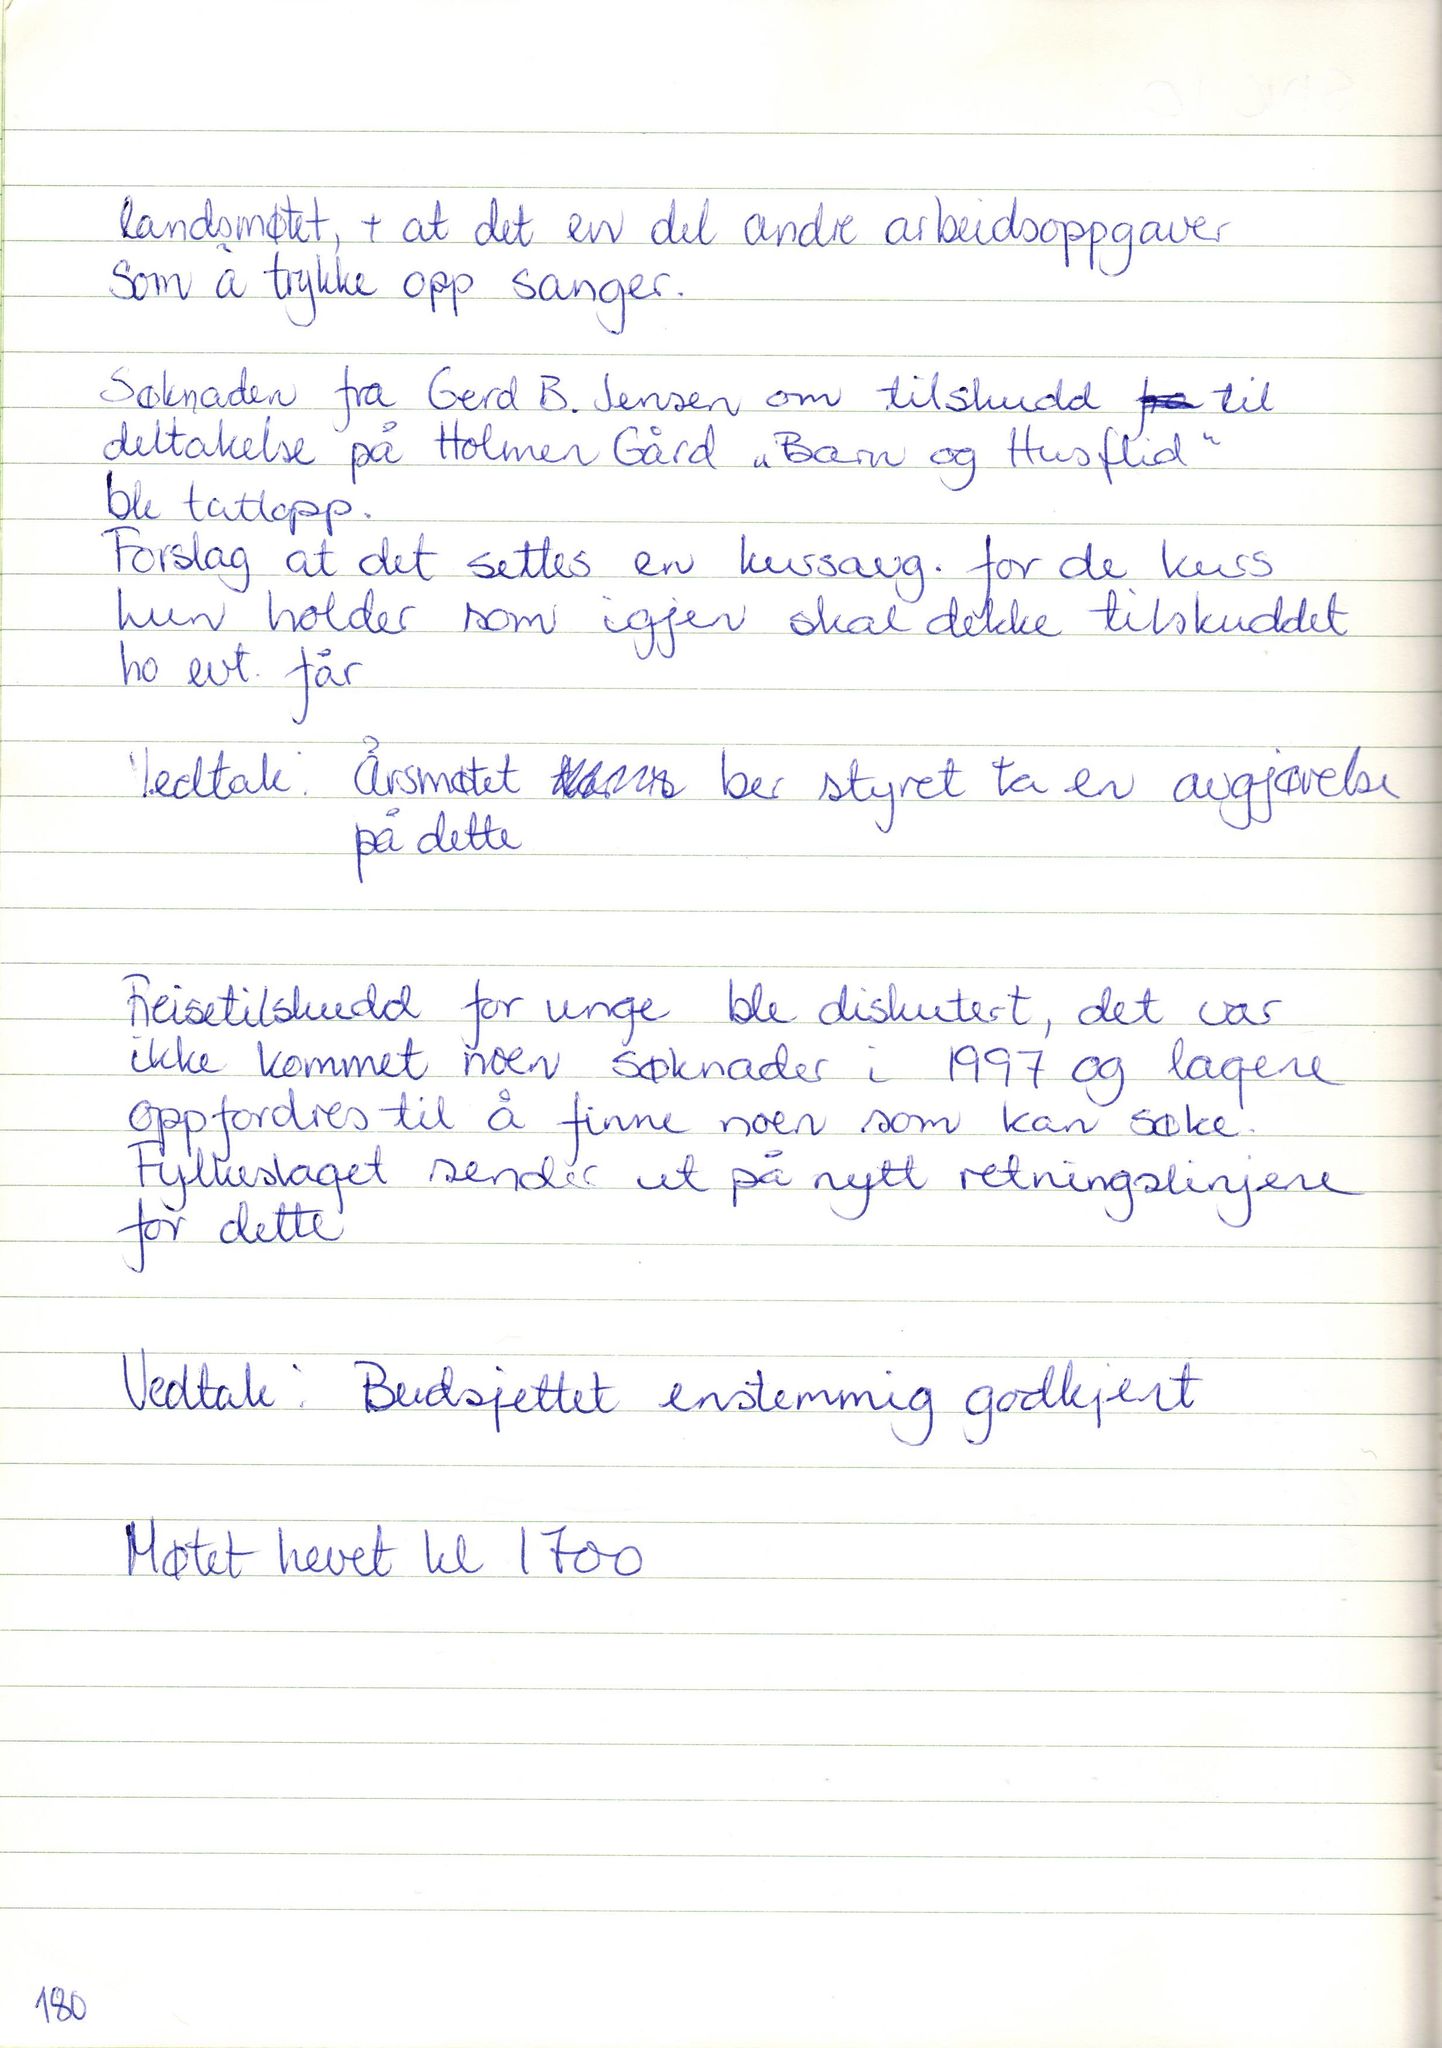 landsmøtet, + at det en del andre arbeidsoppgaver
som å trykke opp sanger.
Søknaden fra Gerd B. Jensen om tilskudd fra til
deltakelse på Holmen Gård „Barn og Husflid"
ble tattopp.
Forslag at det settes en kursavg. for de kurs
hun holder som igjen skal dekke tilskuddet
ho evt. får
Vedtak: Årsmøtet ber styret ta en avgjørelse
på dette
Reisetilskudd for unge ble diskutert, det var
ikke kommet noen søknader i 1997 og lagene
oppfordres til å finne noen som kan søke.
Fylkeslaget sender ut på nytt retningslinjene
for dette
Vedtak: Budsjettet enstemmig godkjent
Møtet hevet kl 1700
180